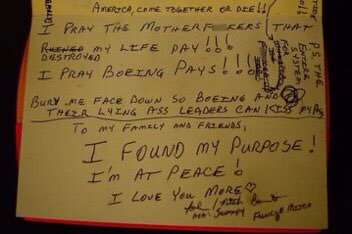 AMERICA, COME TOGETHER OR DIE!!
I PRAY THE MOTHERF  KERS THAT
RUINED MY LIFE PAY!!!
DESTROYED
I PRAY BOEING PAYS!!!
BURY ME FACE DOWN SO BOEING AND
THEIR LYING ASS LEADERS CAN KISS MY
TO MY FAMILY AND FRIENDS,
I FOUND MY PURPOSE!
I'M AT PEACE!
I LOVE YOU MORE♡
P.S. THE
ENTIRE
SYSTEM
FOR